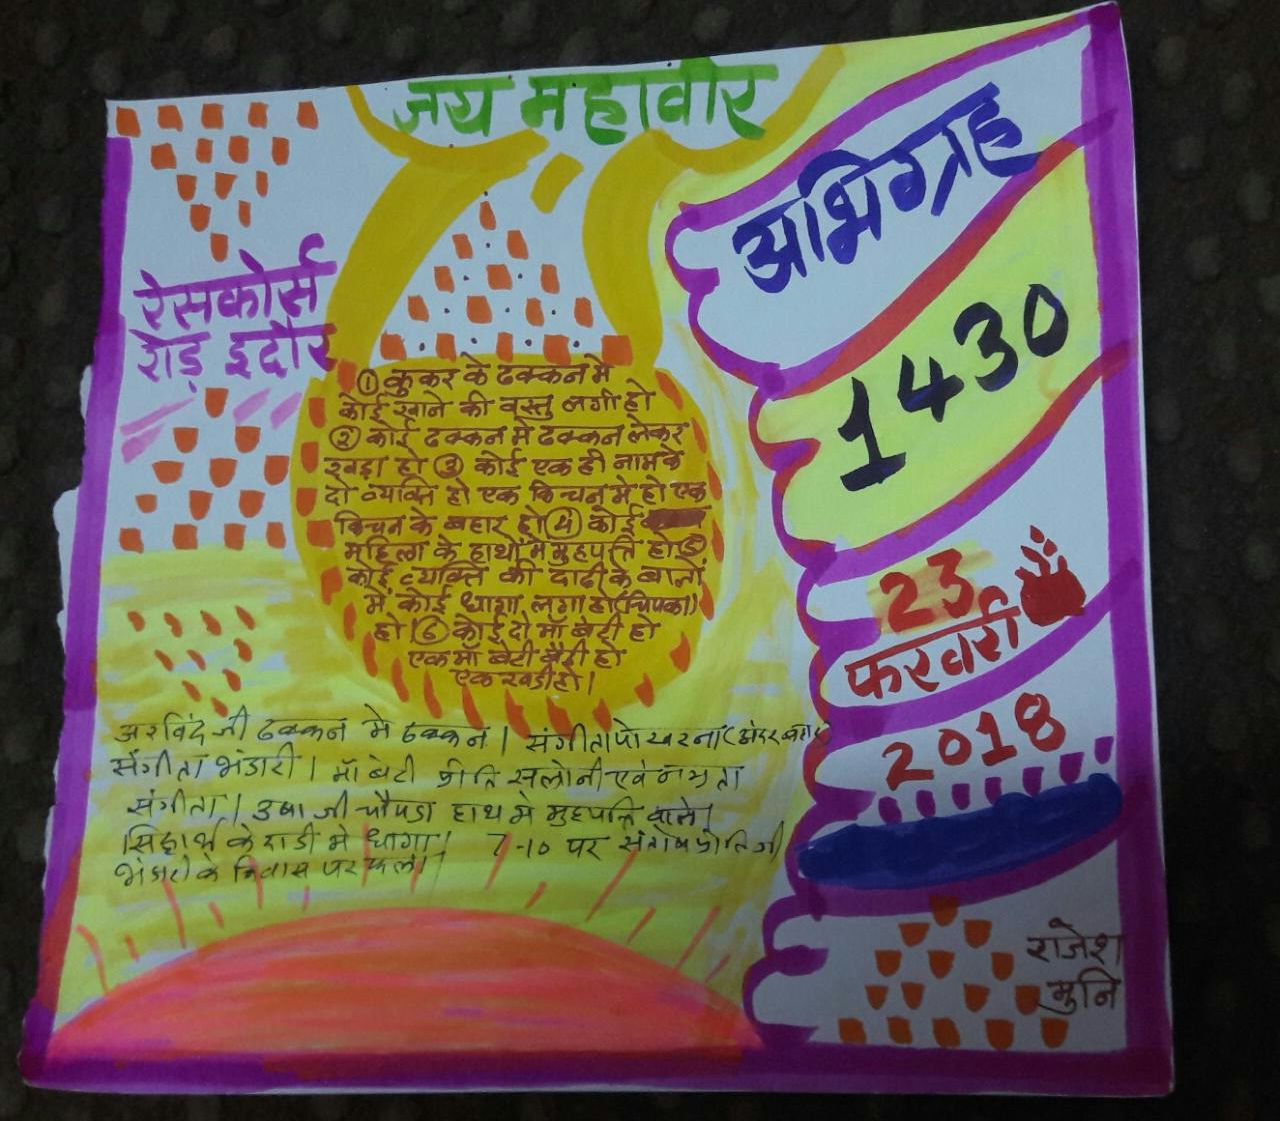 जय महावीर
अभिग्रह
1430
23
फरवरी
2018
रेसकोर्स
रोड़ इदौर
① कुकर के ढक्कन मे
कोई खाने की वस्तु लगी हो
② कोई ढक्कन मे ढक्कन लेकर
खड़ा हो ③ कोई एक ही नाम के
दो व्यक्ति हो एक किचन मे हो एक
किचन के बहार हो ④ कोई
महिला के हाथों मे मुहपत्ति हो ⑤
कोई व्यक्ति की दाढी के बालों
में कोई धागा लगा हो (चिपका)
हो ⑥ कोई दो माँ बेटी हो
एक माँ बेटी बैठी हो
एक खडी हो।
अरविंद जी ढक्कन मे ढक्कन। संगीता पोखरना (अंदर बहार)
संगीता भंडारी। माँ बेटी प्रीति सलोनी एवं नम्रता
संगीता। उषा जी चौपडा हाथ मे मुहपत्ति वाले।
सिद्धार्थ के दाडी मे धागा। 7-10 पर संतोष प्रीति जी
भंडारी के निवास पर फला।
राजेश
मुनि